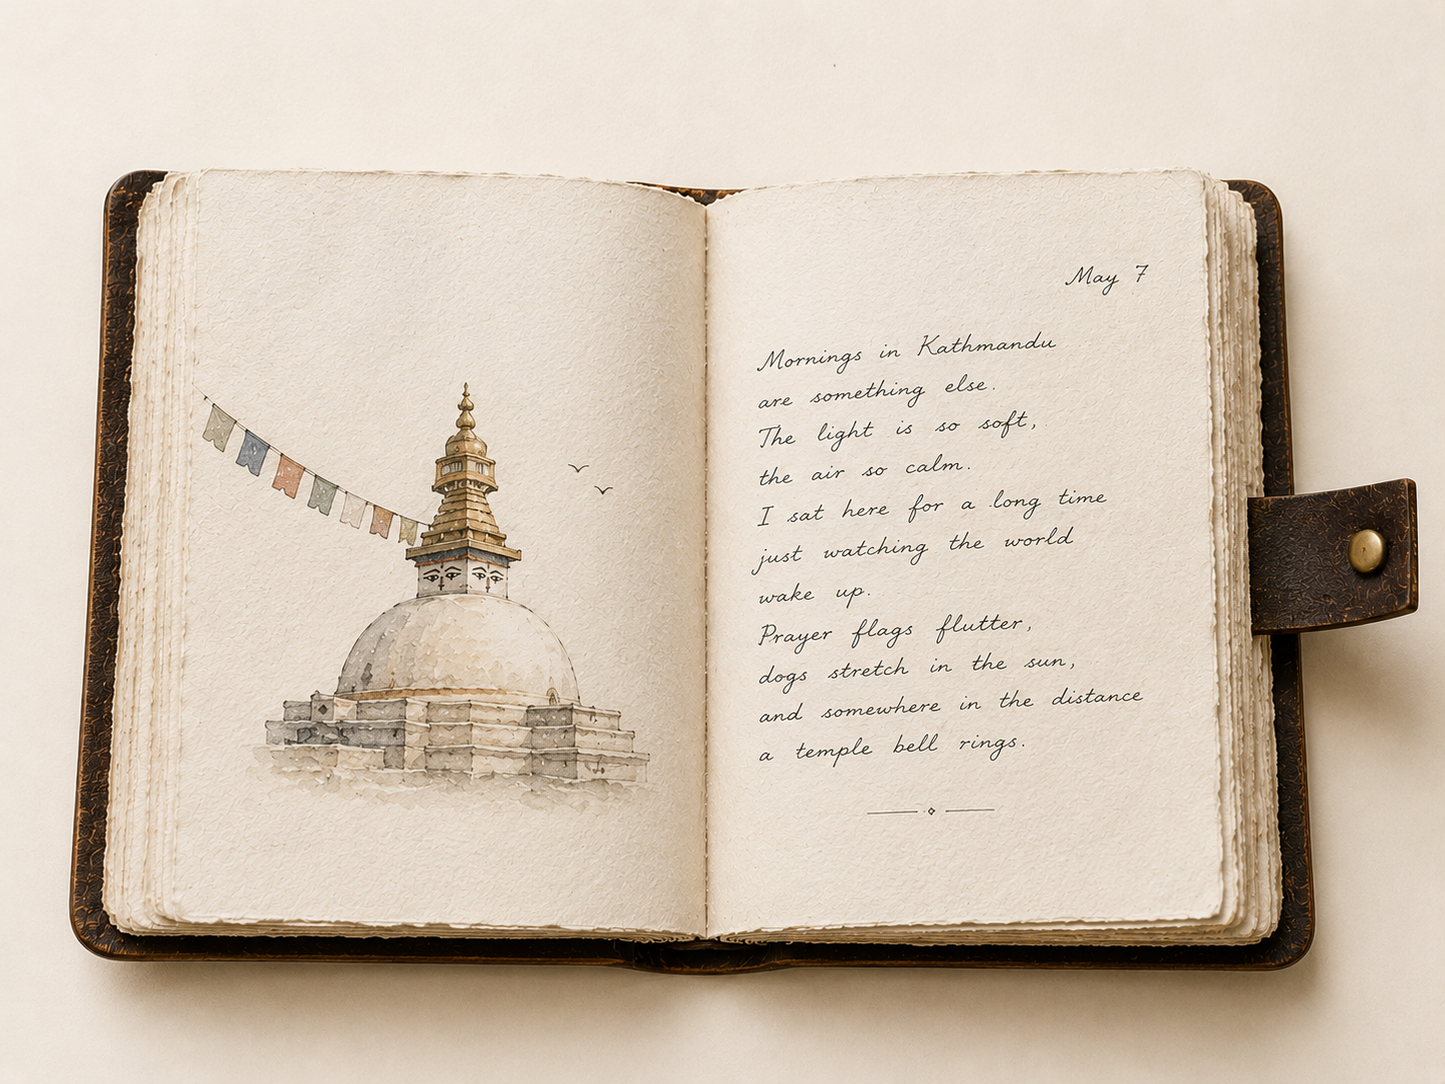 May 7
Mornings in Kathmandu
are something else.
The light is so soft,
the air so calm.
I sat here for a long time
just watching the world
wake up.
Prayer flags flutter,
dogs stretch in the sun,
and somewhere in the distance
a temple bell rings.